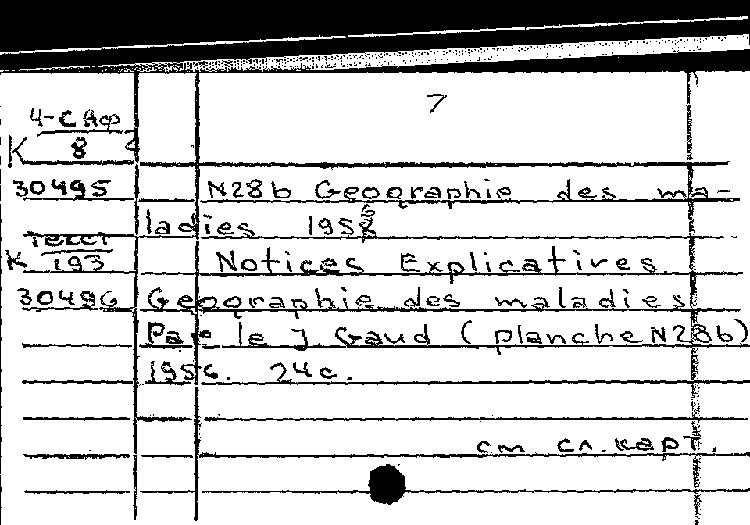 7
4-С Аф
К 8
30495 N28b Geographie des ma-
ladies 1958
Текст
К 193 Notices Explicatives
30496 Geographie des maladies
Par le J Gaud (planche N28b)
1956. 24с.
см сл. карт.